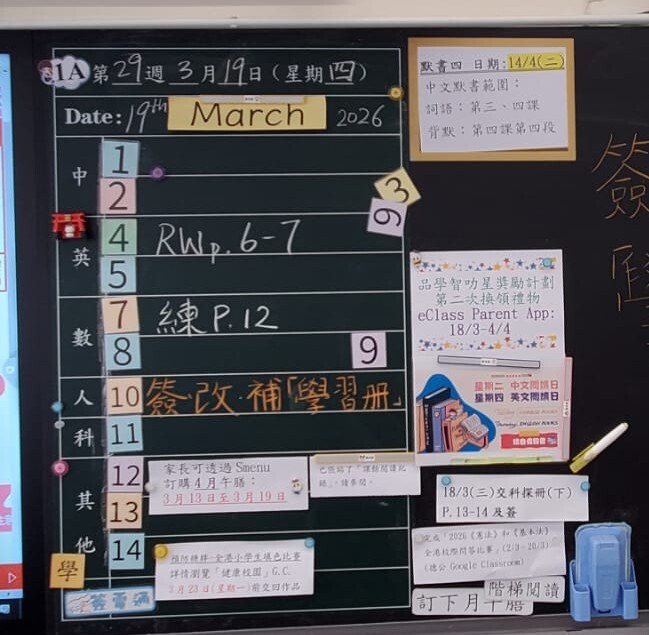 1A 第29週 3月19日(星期四)
Date: 19th March 2026
中
1
2
3
6
英
4 RWp.6-7
5
數
7 練P.12
8
9
人
10 簽·改·補「學習册」
科
11
其
12
家長可透過 Smenu
訂購4月午膳:
3月13日至3月19日
13
他
14
全港小學生填色比賽
詳情瀏覽「健康校園」G.C.
3月23日(星期一)前交回作品
學
默書四 日期:14/4(二)
中文默書範圍:
詞語:第三、四課
背默:第四課第四段
品學智叻星獎勵計劃
第二次換領禮物
eClass Parent App:
18/3-4/4
星期二 中文閱讀日
星期四 英文閱讀日
18/3(三)交科探冊(下)
P.13-14 及簽
完成「2026《憲法》和《基本法》
全港校際問答比賽」(2/3-20/3)
(德公 Google Classroom)
階梯閱讀
訂下月午膳
簽